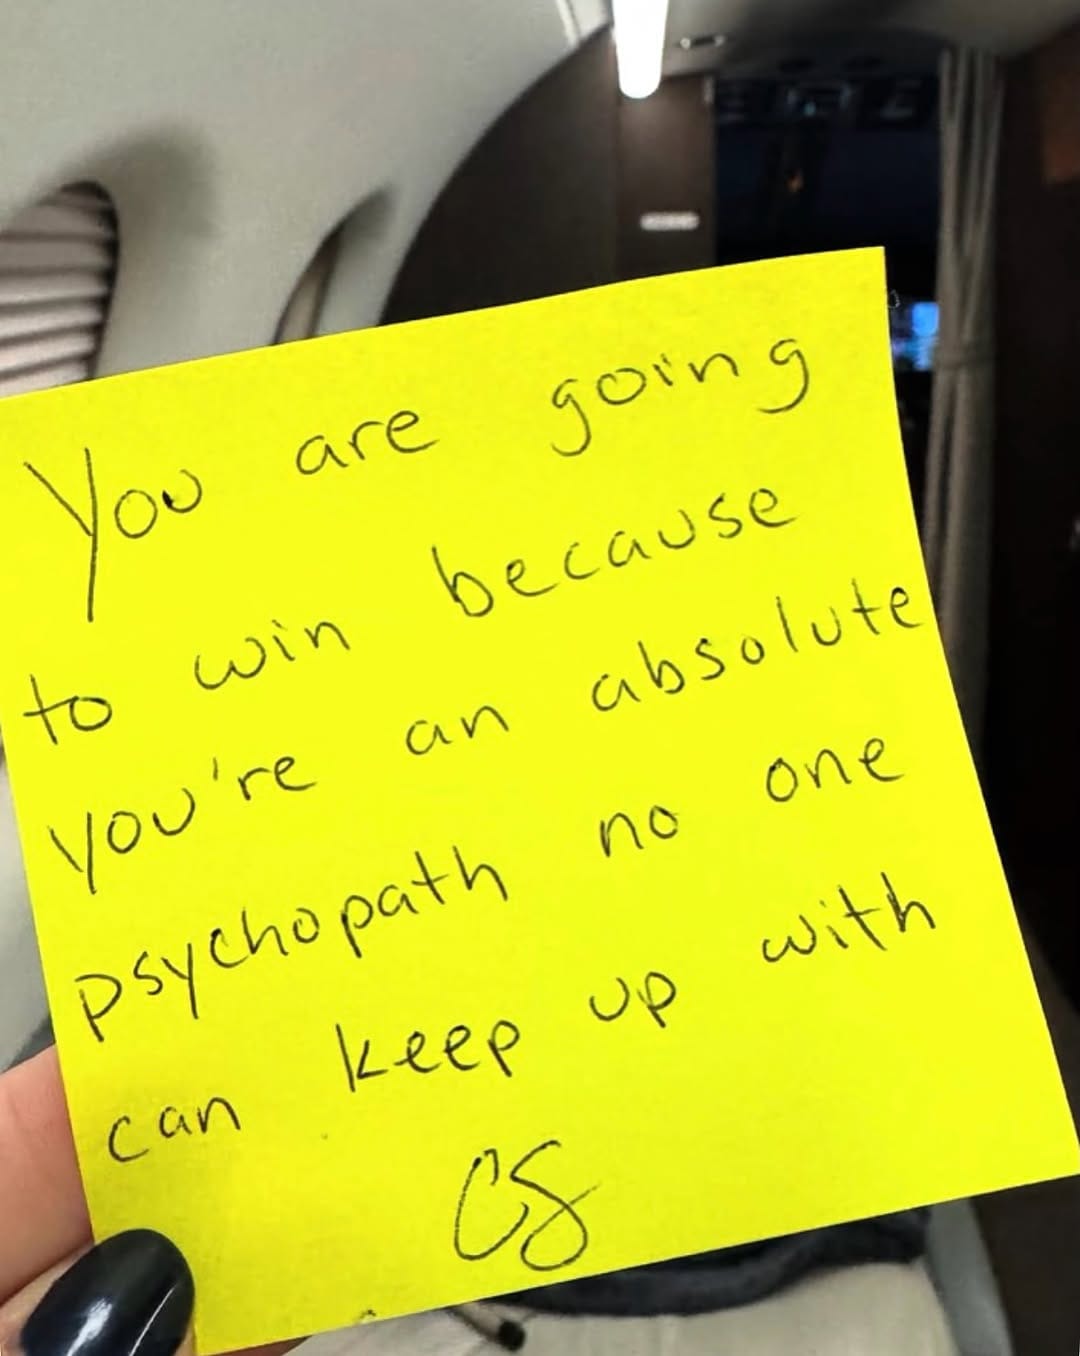 You are going
to win because
you're an absolute
psychopath no one
can keep up with
CS